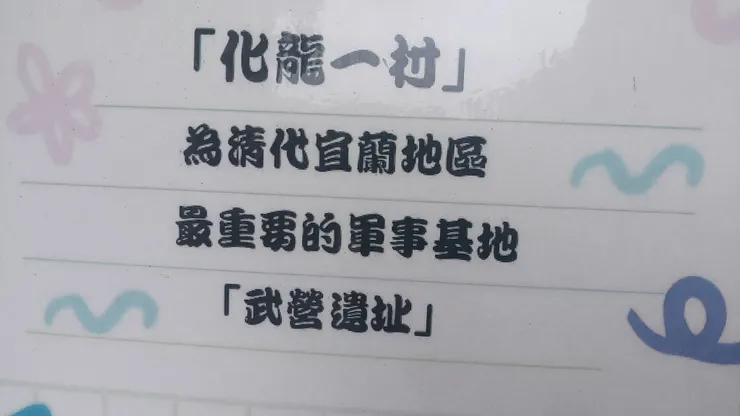 「化龍一村」
為清代宜蘭地區
最重要的軍事基地
「武營遺址」